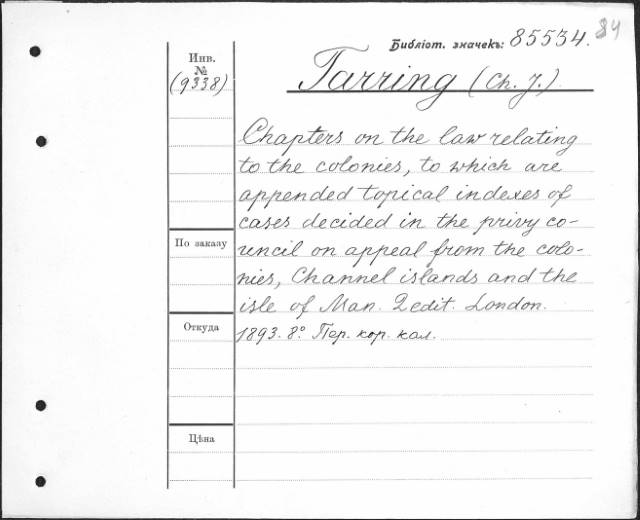 84
Библіот. значекъ: 85534.
Инв.
№
(9338)
Tarring (Ch. J.)
Chapters on the law relating
to the colonies, to which are
appended topical indexes of
cases decided in the privy co-
uncil on appeal from the colo-
nies, Channel islands and the
isle of Man. 2 edit. London.
1893. 8° Пер. кор. кал.
По заказу
Откуда
Цѣна